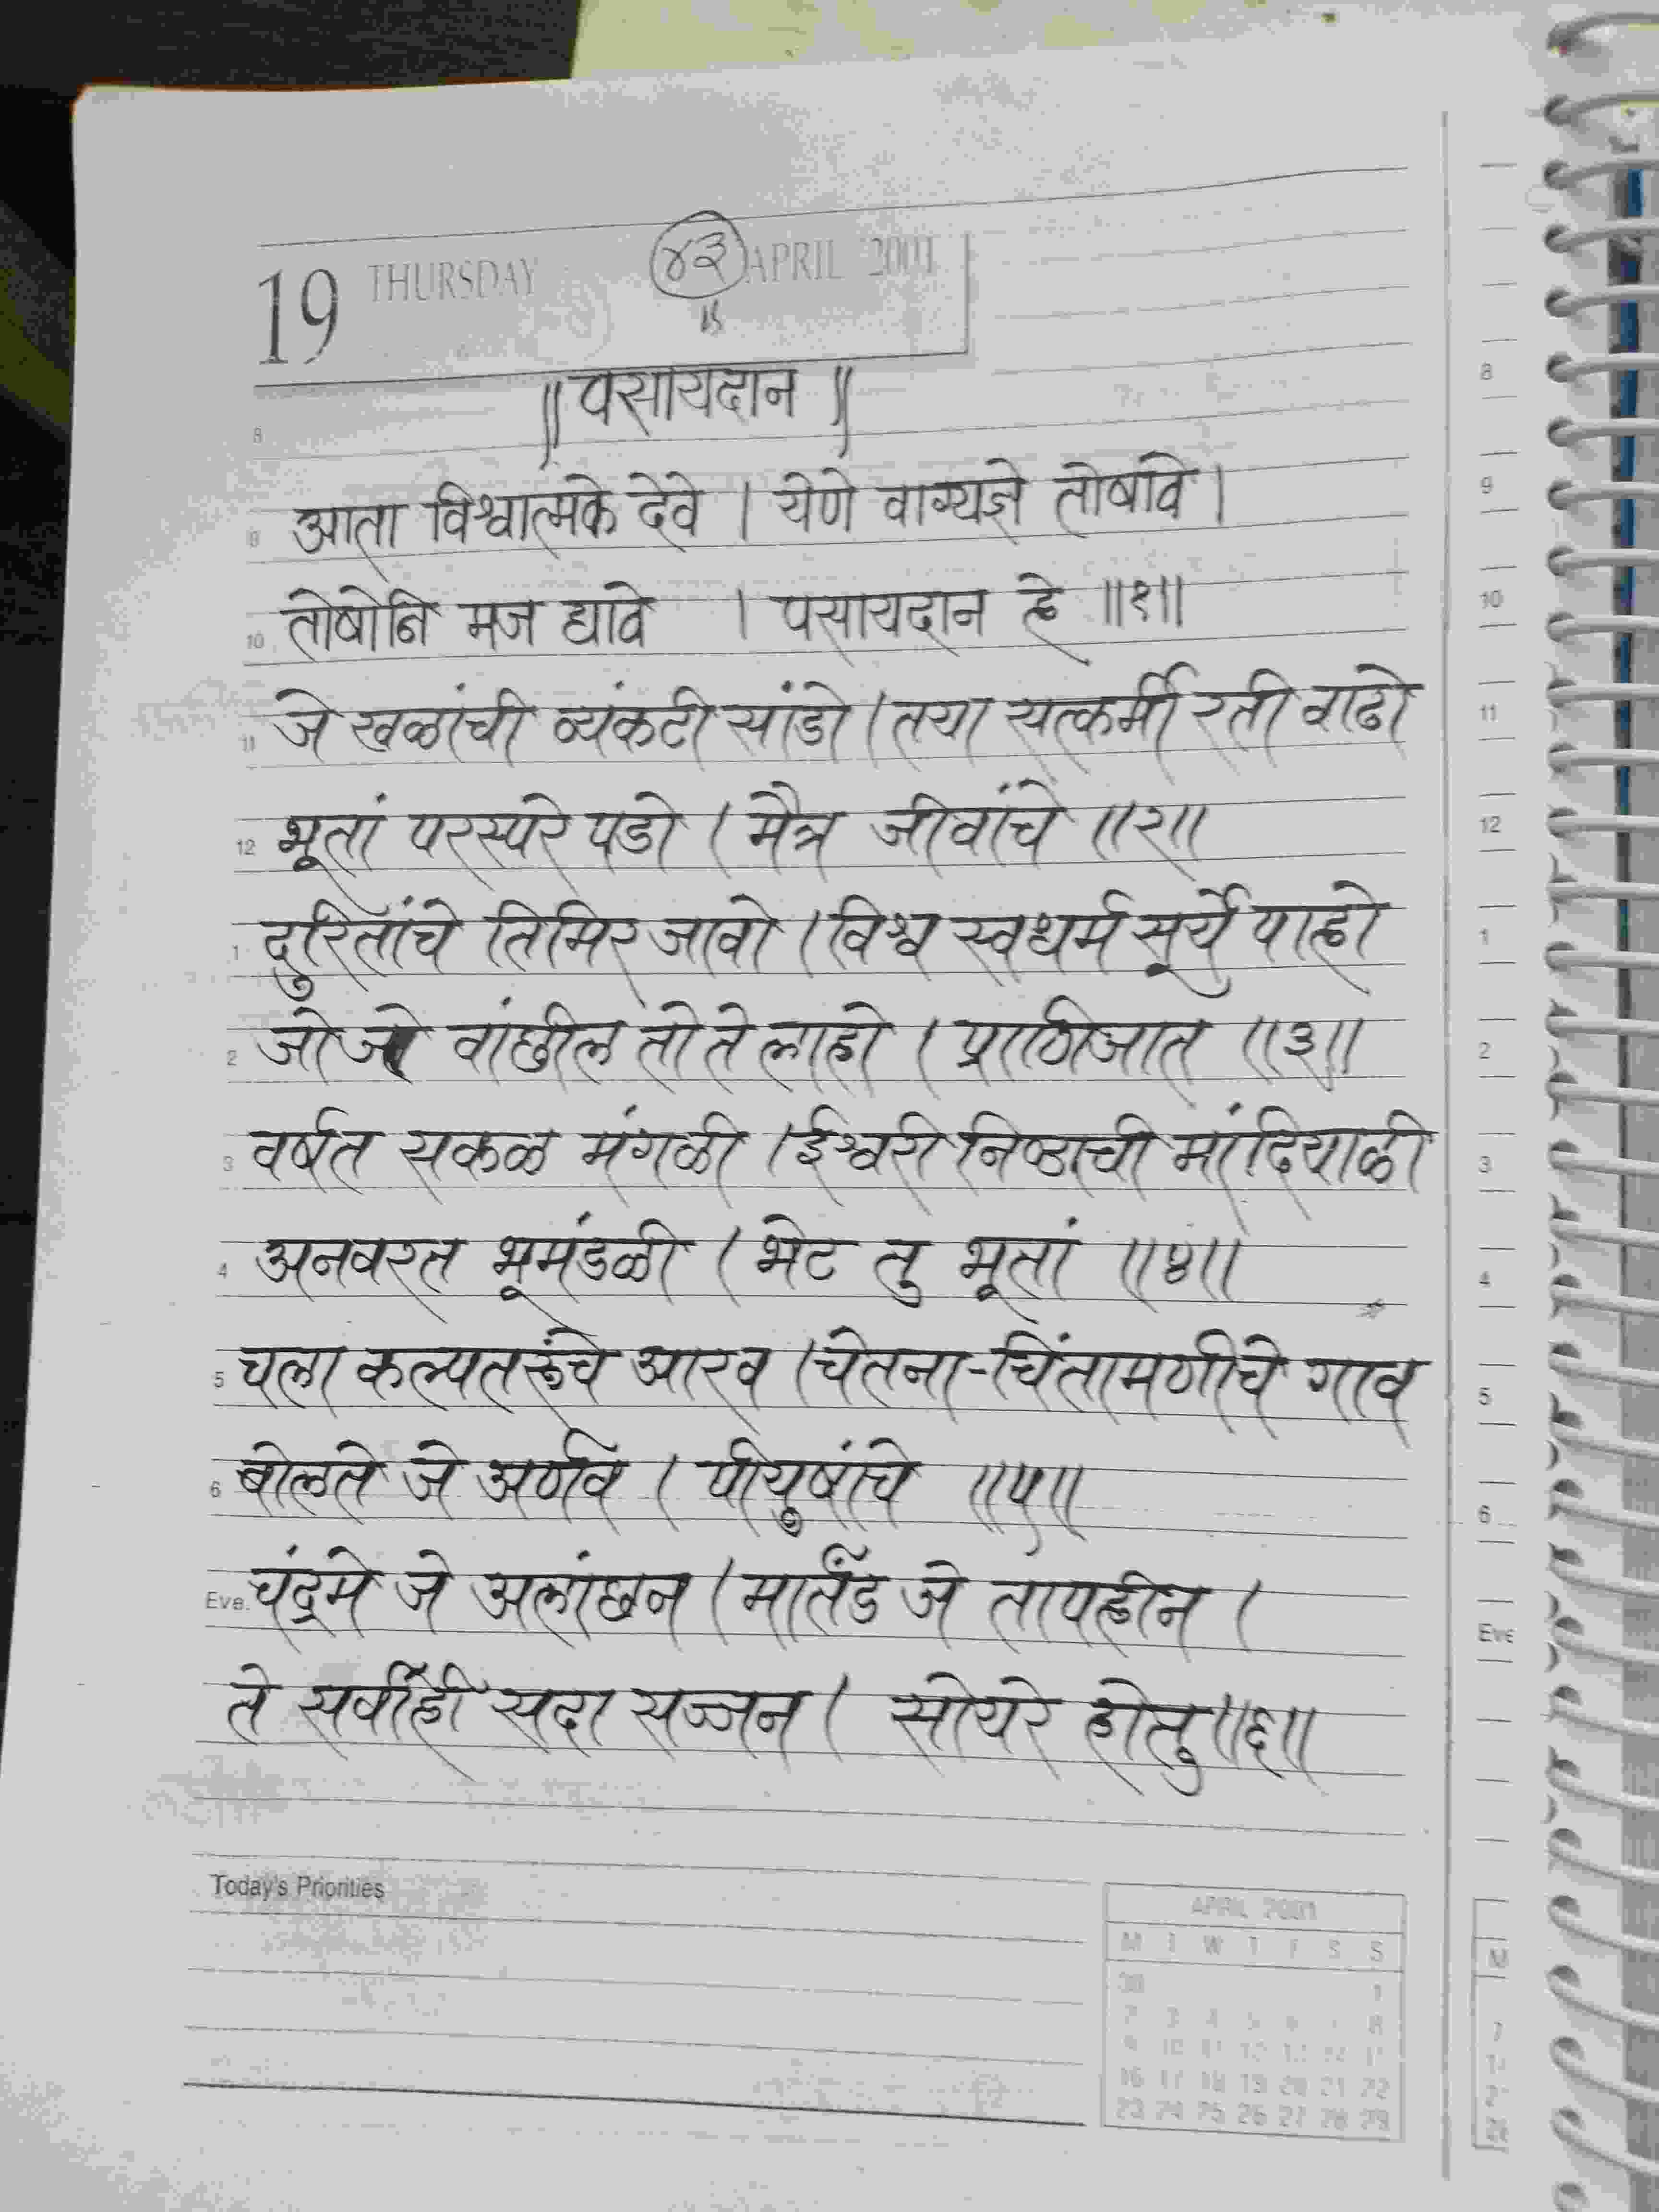 19 THURSDAY ४३ APRIL 2001
॥ पसायदान ॥
8 8
9 आता विश्वात्मके देवे । येणे वाग्यज्ञे तोषावे । 9
10 तोषोनि मज द्यावे । पसायदान हे ॥१॥ 10
11 जे खळांची व्यंकटी सांडो । तया सत्कर्मी रती वाढो 11
12 भूतां परस्परे पडो । मैत्र जीवांचे ॥२॥ 12
1 दुरितांचे तिमिर जावो । विश्व स्वधर्म सूर्ये पाहो 1
2 जो जे वांछील तो ते लाहो । प्राणिजात ॥३॥ 2
3 वर्षत सकळ मंगळी । ईश्वरी निष्ठाची मांदियाळी 3
4 अनवरत भूमंडळी । भेट तु भूतां ॥४॥ 4
5 चला कल्पतरूंचे आरव । चेतना-चिंतामणीचे गाव 5
6 बोलते जे अर्णव । पीयुषांचे ॥५॥ 6
Eve. चंद्रमे जे अलांछन । मार्तंड जे तापहीन । Eve
ते सर्वांही सदा सज्जन । सोयरे होतु ॥६॥
Today's Priorities
APRIL 2001
M T W T F S S
30 1
2 3 4 5 6 8
9 10 11 12 13 14
16 17 18 19 20 21 22
23 24 25 26 27 28 29